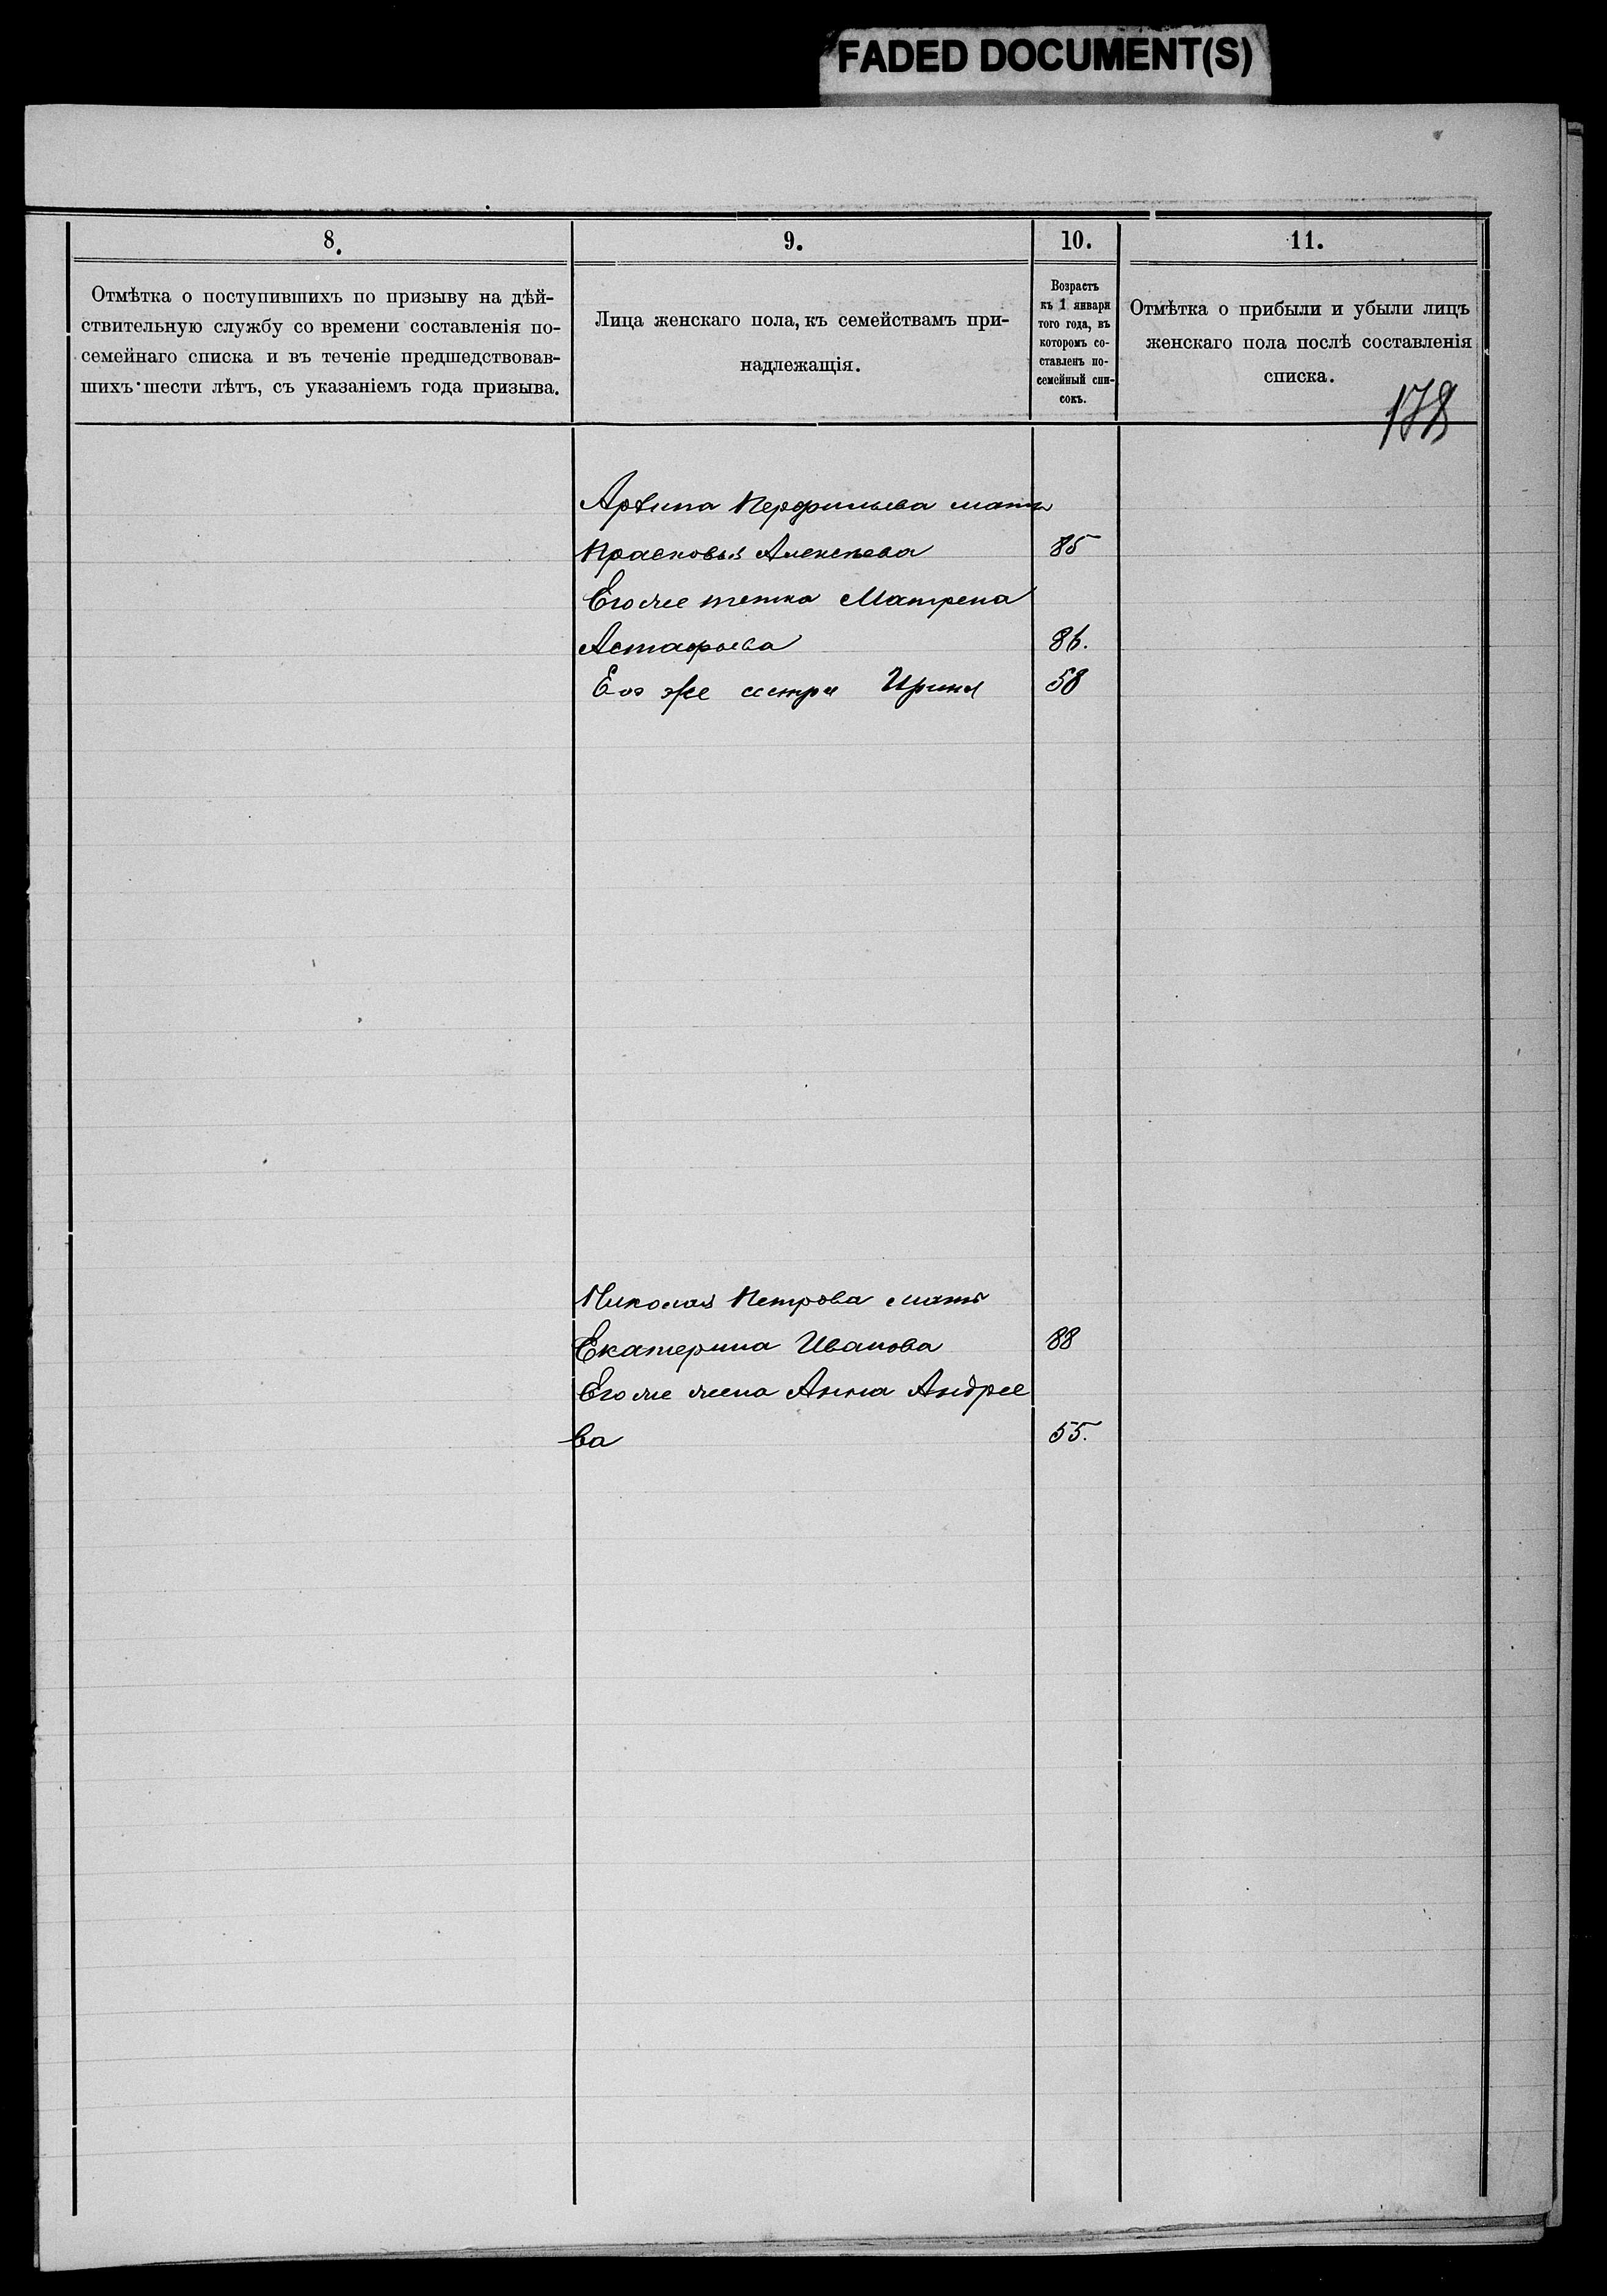 FADED DOCUMENT(S)
8.
9.
10.
11.
Отмѣтка о поступившихъ по призыву на дѣй-
ствительную службу со времени составленія по-
семейнаго списка и въ теченіе предшедствовав-
шихъ шести лѣтъ, съ указаніемъ года призыва.
Лица женскаго пола, къ семействамъ при-
надлежащія.
Возрастъ
къ 1 января
того года, въ
которомъ со-
ставленъ по-
семейный спи-
сокъ.
Отмѣтка о прибыли и убыли лицъ
женскаго пола послѣ составленія
списка.
178
Перфильева мать
Прасковья Алексѣева 85
Его же тетка Матрена
Астафьева 86.
Его же сестра Ирина 58
Николая Петрова мать
Екатерина Иванова 88
Его же жена Анна Андрее
ва 55.